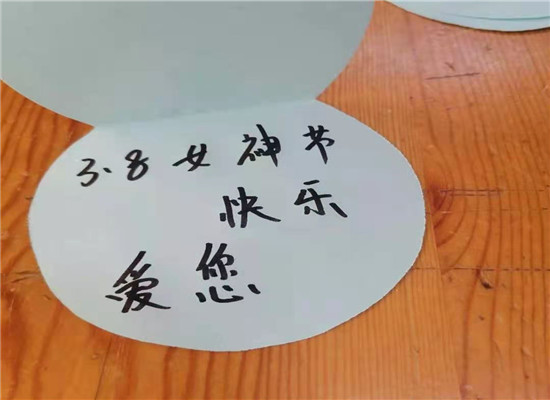 3.8女神节
快乐
爱您